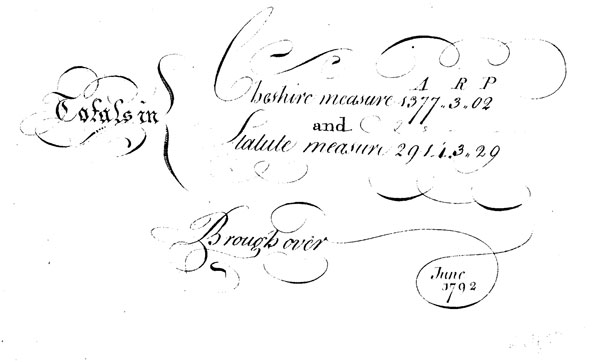 A R P
Totals in Cheshire measure 1377..3..02
and
Statute measure 2914..3..29
Brought over
June
1792